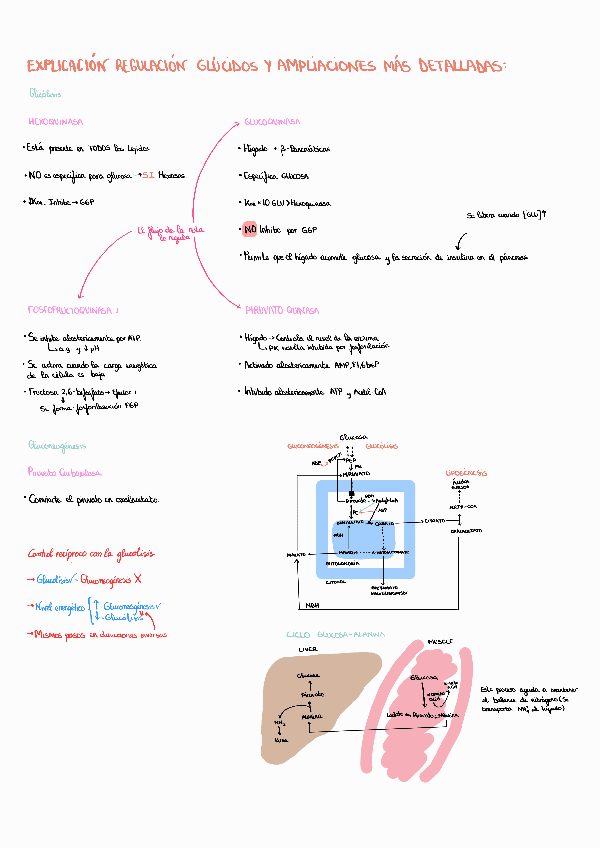 EXPLICACIÓN REGULACIÓN GLÚCIDOS Y AMPLIACIONES MÁS DETALLADAS:
Glucólisis
HEXOQUINASA
• Está presente en TODOS los tejidos
• NO es específica para glucosa → SÍ Hexosas
Inhibe → G6P
GLUCOQUINASA
• Hígado + β-Pancreáticas
• Específica GLUCOSA
• Km = 10 GLU > Hexoquinasa
• NO Inhibe por G6P
Se libera cuando [GLU]↑
• Permite que el hígado acumule glucosa y la secreción de insulina en el páncreas
El flujo de la ruta
lo regula
FOSFOFRUCTOQUINASA 1
• Se inhibe alostéricamente por ATP
y ↓pH
• Se activa cuando la carga energética
de la célula es baja
• Fructosa 2,6-bifosfato →
Se forma fosforilación F6P
PIRUVATO QUINASA
• Hígado → Controla el nivel de la enzima
inhibida por fosforilación
• Activado alostéricamente AMP, F1,6biP
• Inhibido alostéricamente ATP y Acetil CoA
Gluconeogénesis
Piruvato Carboxilasa
• Convierte el piruvato en oxalacetato
Control recíproco con la glucolisis
→ Glucólisis✓ - Gluconeogénesis X
→ Nivel energético
↑ Gluconeogénesis✓
↓ Glucólisis✓
→ Mismos pasos en direcciones inversas
Glucosa
GLUCONEOGÉNESIS
GLUCÓLISIS
PEP
PIRUVATO
LIPOGÉNESIS
CITRATO
OXALACETATO
MALATO
MITOCONDRIA
CITOSOL
CICLO GLUCOSA-ALANINA
LIVER
Glucosa
Piruvato
Alanina
Urea
MUSCLE
Glucosa
Este proceso ayuda a mantener
el balance de nitrógeno (Se
transporta NH₄⁺ al hígado)